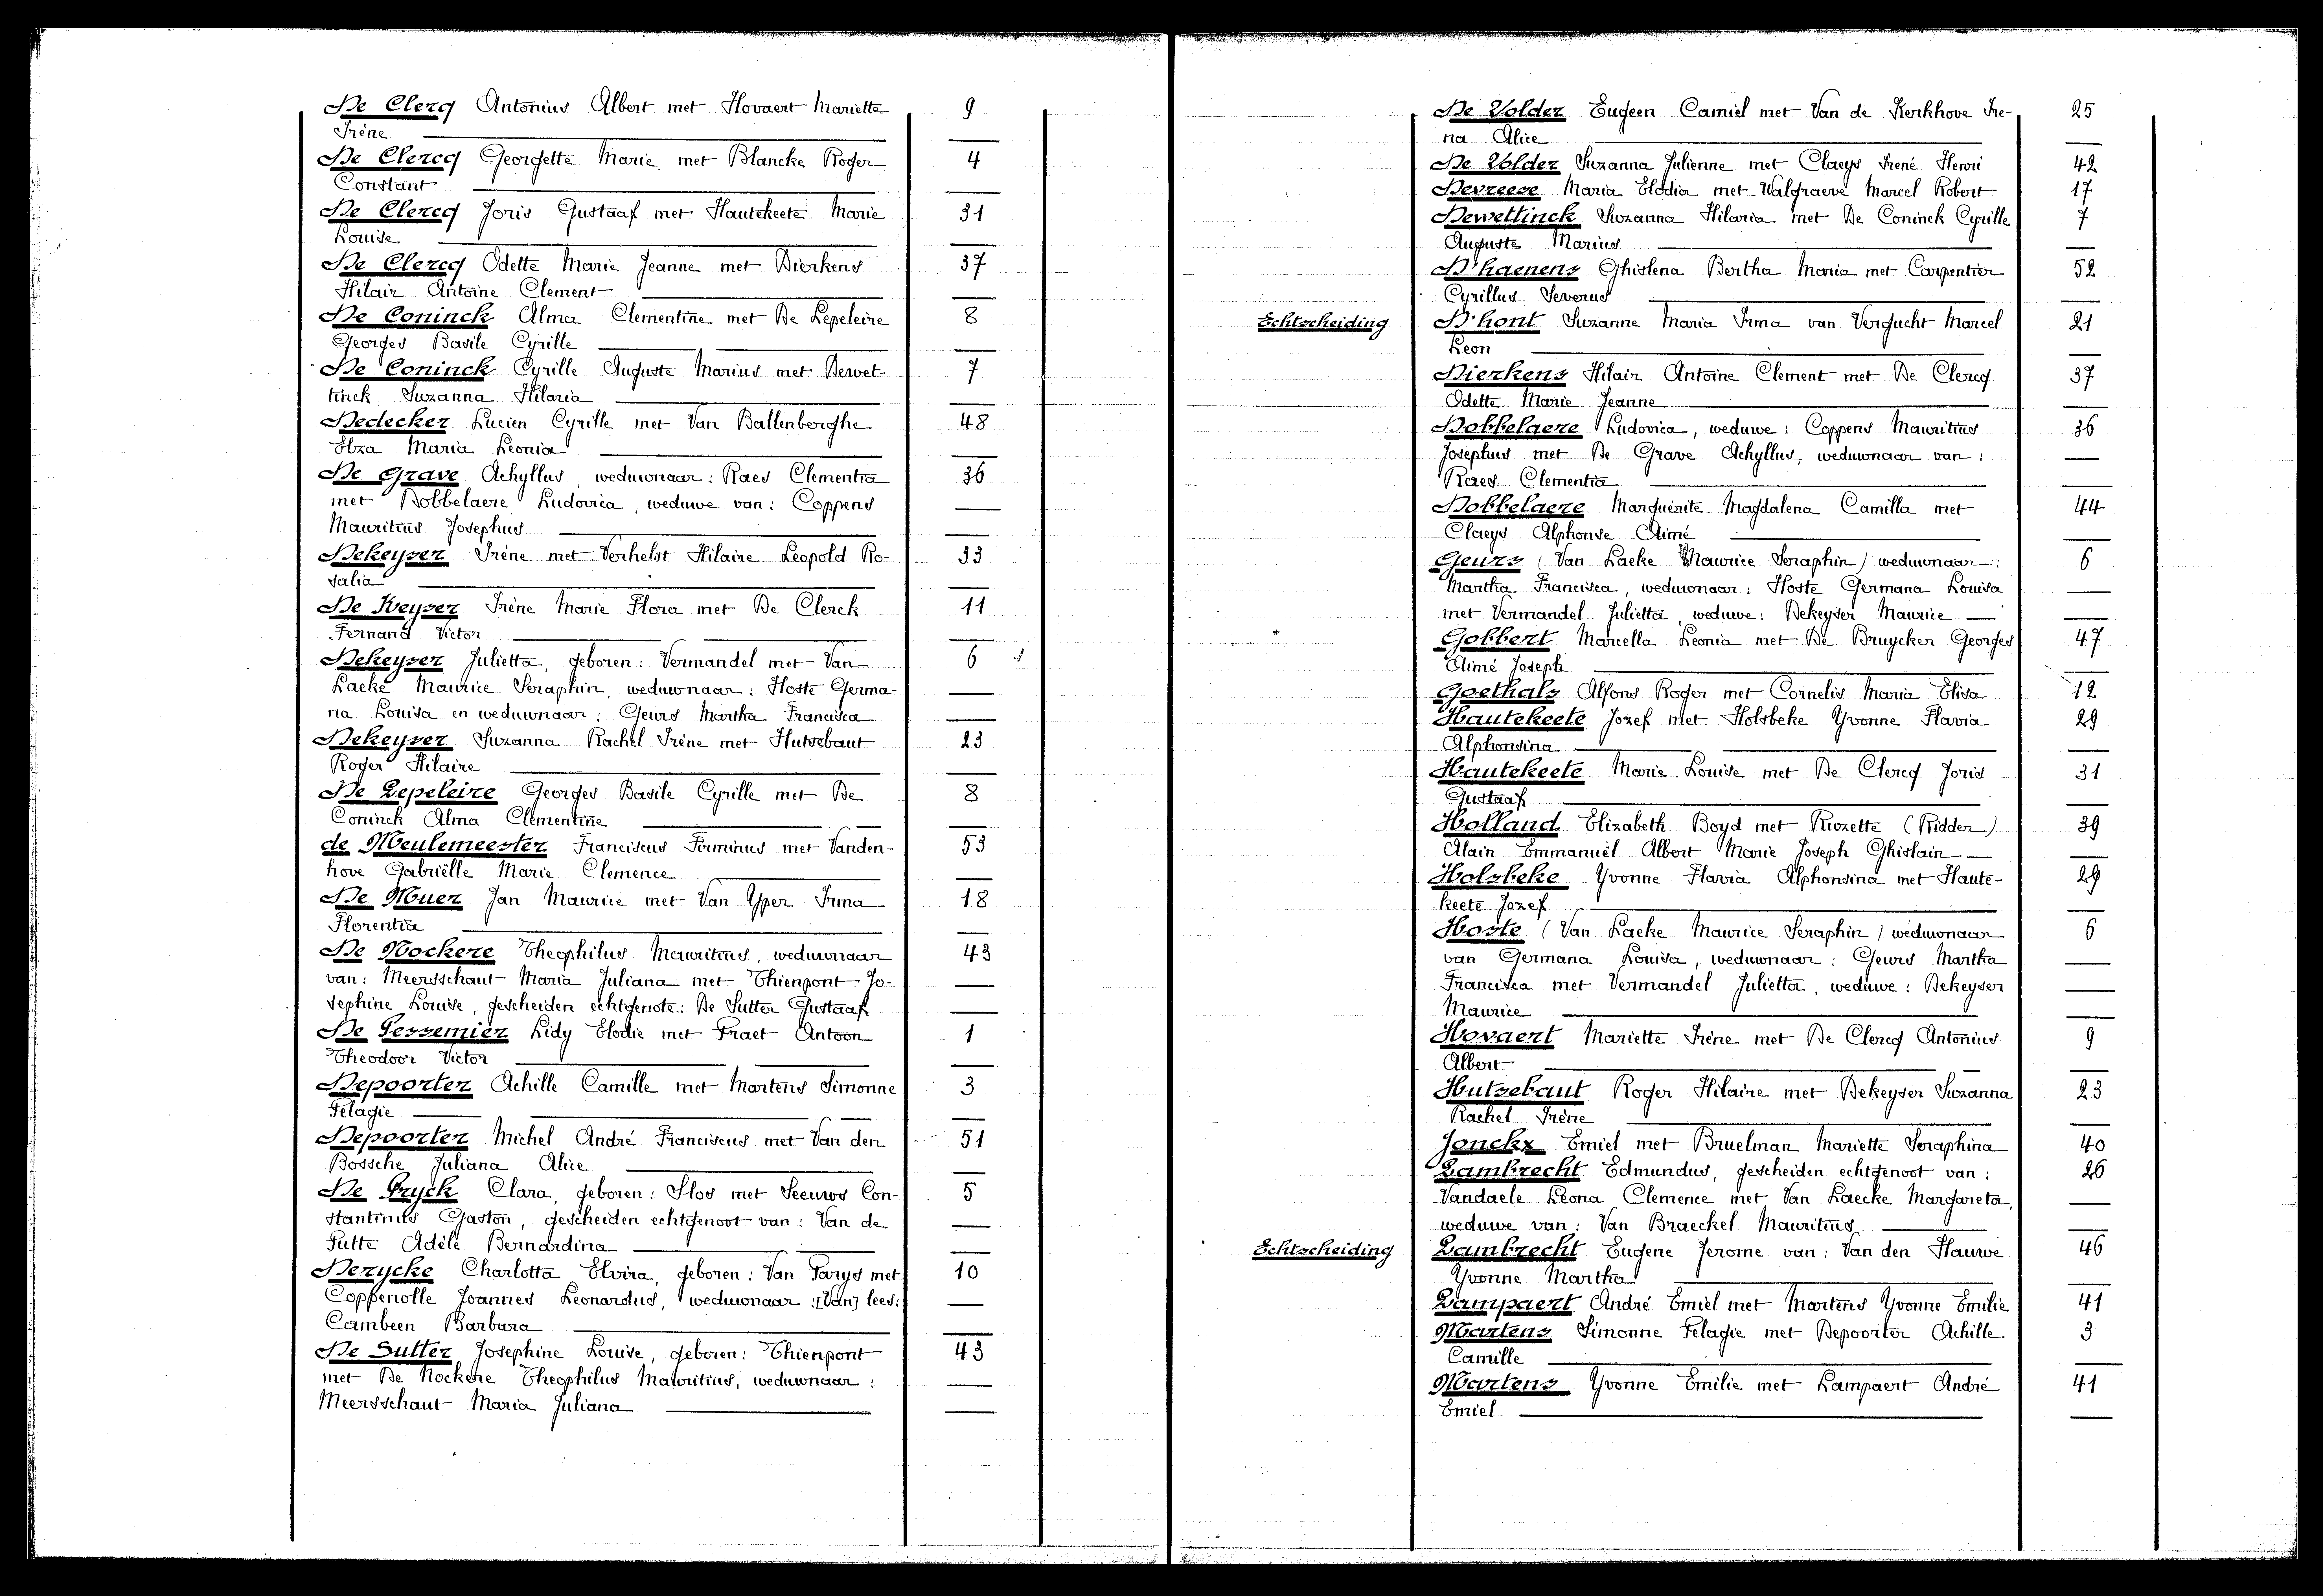 De Clercq Antonius Albert met Hovaert Mariette 9
Irène
De Clercq Georgette Marie met Blancke Roger 4
Constant
De Clercq Joris Gustaaf met Hautekeete Marie 31
Louise
De Clercq Odette Marie Jeanne met Dierkens 37
Hilair Antoine Clement
De Coninck Alma Clementine met De Lepeleire 8
Georges Basile Cyrille
De Coninck Cyrille Auguste Marius met Dewet- 7
tinck Suzanna Hilaria
Dedecker Lucien Cyrille met Van Ballenberghe 48
Elza Maria Leonia
De Grave Achyllus, weduwnaar: Raes Clementia 36
met Dobbelaere Ludovica, weduwe van: Coppens
Mauritius Josephus
Dekeyser Irène met Verhelst Hilaire Leopold Ro- 33
salia
De Keyser Irène Marie Flora met De Clerck 11
Fernand Victor
Dekeyser Julietta, geboren: Vermandel met Van 6
Laeke Maurice Seraphin, weduwnaar: Hoste Germa-
na Louisa en weduwnaar: Geurs Martha Francisca
Dekeyser Suzanna Rachel Irène met Hutsebaut 23
Roger Hilaire
De Lepeleire Georges Basile Cyrille met De 8
Coninck Alma Clementine
de Meulemeester Franciscus Firminus met Vanden- 53
hove Gabriëlle Marie Clemence
De Muer Jan Maurice met Van Yper Irma 18
Florentia
De Nockere Theophilus Mauritius, weduwnaar 43
van: Meersschaut Maria Juliana met Thienpont Jo-
sephine Louise, gescheiden echtgenote: De Sutter Gustaaf
De Pessemier Lidy Elodie met Praet Antoon 1
Theodoor Victor
Depoorter Achille Camille met Martens Simonne 3
Pelagie
Depoorter Michel André Franciscus met Van den 51
Bossche Juliana Alice
De Pryck Clara, geboren: Slos met Seeuws Con- 5
stantinus Gaston, gescheiden echtgenoot van: Van de
Putte Adèle Bernardina
Derycke Charlotta Elvira, geboren: Van Parys met 10
Coppenolle Joannes Leonardus, weduwnaar: [Van] lees:
Cambeen Barbara
De Sutter Josephine Louise, geboren: Thienpont 43
met De Nockere Theophilus Mauritius, weduwnaar:
Meersschaut Maria Juliana
De Volder Eugeen Camiel met Van de Kerkhove Ire- 25
na Alice
De Volder Suzanna Julienne met Claeys Irené Henri 42
Devreese Maria Elodia met Walgraeve Marcel Robert 17
Dewettinck Suzanna Hilaria met De Coninck Cyrille 7
Auguste Marius
D'haenens Ghislena Bertha Maria met Carpentier 52
Cyrillus Severus
Echtscheiding D'hont Suzanne Maria Irma van Vergucht Marcel 21
Leon
Dierkens Hilair Antoine Clement met De Clercq 37
Odette Marie Jeanne
Dobbelaere Ludovica, weduwe: Coppens Mauritius 36
Josephus met De Grave Achyllus, weduwnaar van:
Raes Clementia
Dobbelaere Marguérite Magdalena Camilla met 44
Claeys Alphonse Aimé
Geurs (Van Laeke Maurice Seraphin) weduwnaar: 6
Martha Francisca, weduwnaar: Hoste Germana Louisa
met Vermandel Julietta, weduwe: Dekeyser Maurice
Gobbert Marcella Leonia met De Bruycker Georges 47
Aimé Joseph
Goethals Alfons Roger met Cornelis Maria Elisa 12
Hautekeete Jozef met Holsbeke Yvonne Flavia 29
Alphonsina
Hautekeete Marie Louise met De Clercq Joris 31
Gustaaf
Holland Elizabeth Boyd met Ruzette (Ridder) 39
Alain Emmanuël Albert Marie Joseph Ghislain
Holsbeke Yvonne Flavia Alphonsina met Haute- 29
keete Jozef
Hoste (Van Laeke Maurice Seraphin) weduwnaar 6
van Germana Louisa, weduwnaar: Geurs Martha
Francisca met Vermandel Julietta, weduwe: Dekeyser
Maurice
Hovaert Mariette Irène met De Clercq Antonius 9
Albert
Hutsebaut Roger Hilaire met Dekeyser Suzanna 23
Rachel Irène
Jonckx Emiel met Bruelman Mariette Seraphina 40
Lambrecht Edmundus, gescheiden echtgenoot van: 26
Vandaele Leona Clemence met Van Laecke Margareta,
weduwe van: Van Braeckel Mauritius
Echtscheiding Lambrecht Eugene Jerome van: Van den Hauwe 46
Yvonne Martha
Lampaert André Emiel met Martens Yvonne Emilie 41
Martens Simonne Pelagie met Depoorter Achille 3
Camille
Martens Yvonne Emilie met Lampaert André 41
Emiel